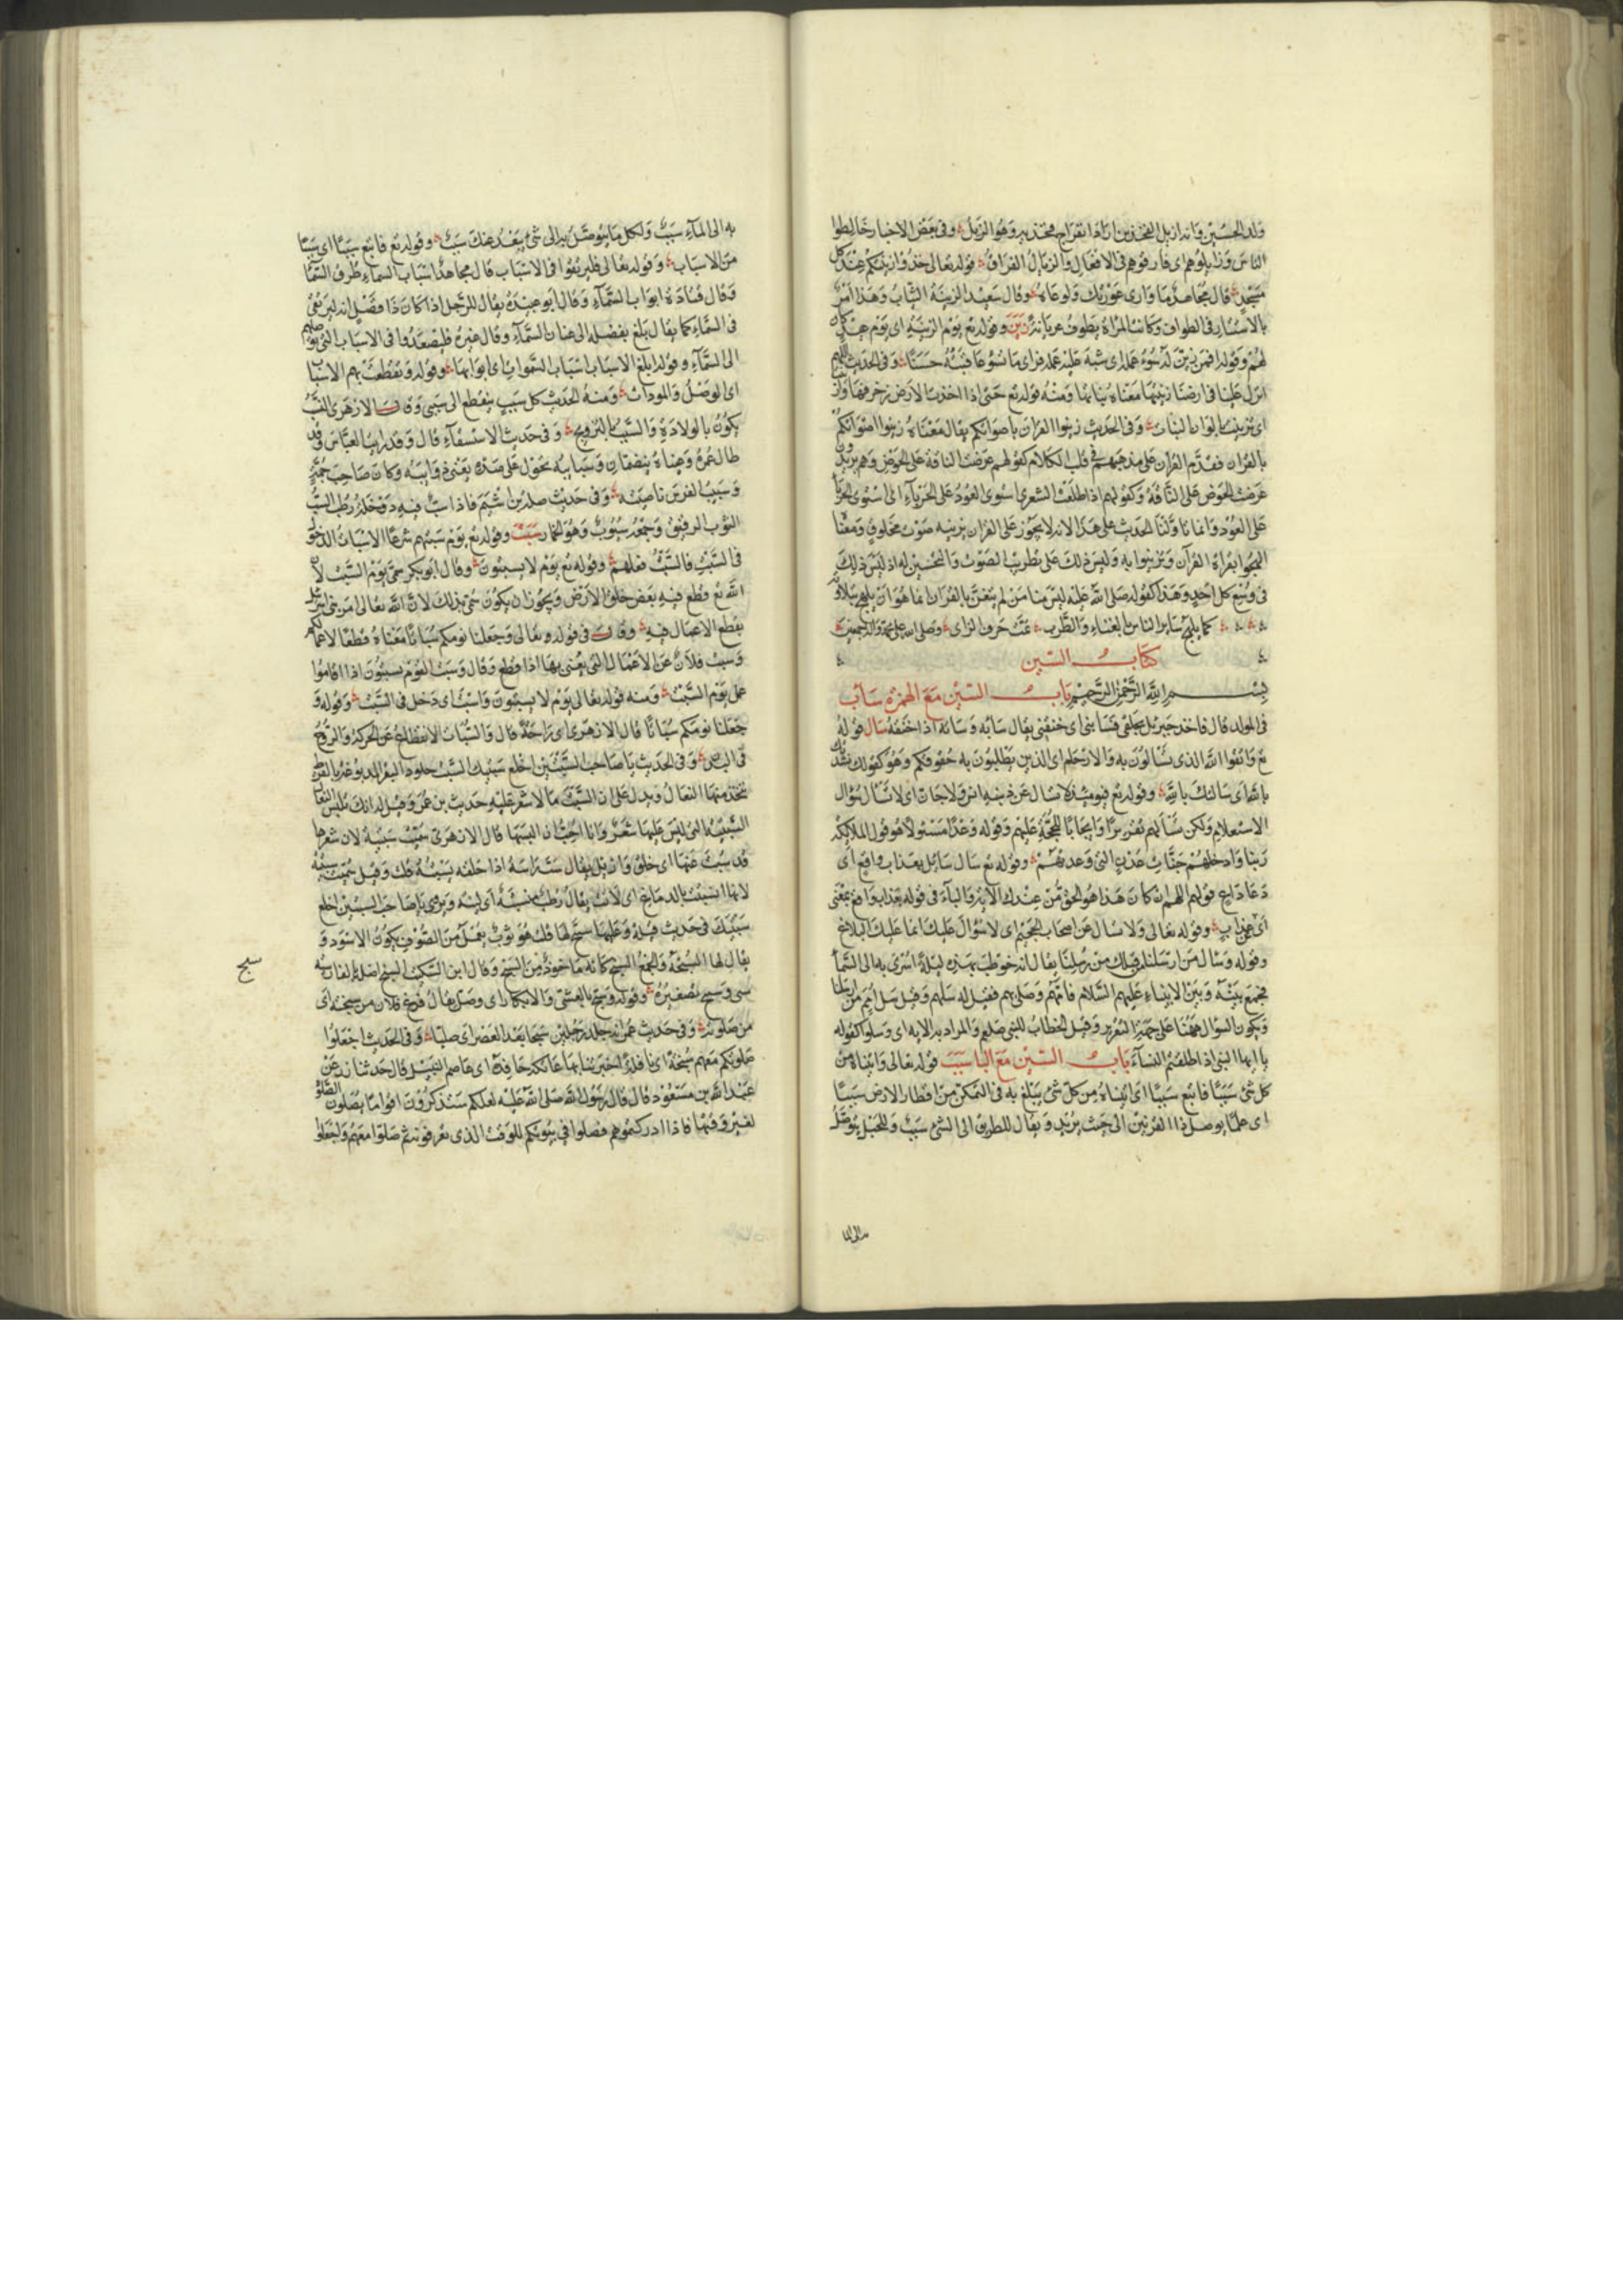 الناس وزايلوهم اى فارقوهم فى الافعال والزيال الفراق قوله تعالى خذوا زينتكم عند كل
مسجد قال مجاهد ما وارى عورتك ولو عباة وقال سعيد الزينة الثياب وهذا امر
بالاستتار فى الطواف وكانت المرأة تطوف عريانة زين وقوله تع يوم الزينة اى يوم عيد كان
لهم وقوله افمن زين له سوء عمله اى شبه عليه عمله فراى ما
انزل علينا فى ارضنا زينتها معناه نباتها ومنه قوله تع حتى اذا اخذت الارض زخرفها واز
اى تزينت بالوان النبات وفى الحديث زينوا القران باصواتكم يقال معناه زينوا اصواتكم
بالقران فقدم القران على مذهبهم فى قلب الكلام كقولهم عرضت الناقة على الحوض وهم يريدون
عرضت الحوض على الناقة وكقولهم اذا طلعت الشعرى استوى العود على الحرباء اى استوى الحربا
على العود وانما تاولنا الحديث على هذا لانه لا يجوز على القران ان يزينه صوت مخلوق ومعنا
الهجوا بقراة القرآن وتزينوا به وليس ذلك على تطريب الصوت والتحسين له اذ ليس ذلك
فى وسع كل احد وهذا كقوله صلى الله عليه ليس منا من لم يتغن بالقران انما هو ان يلهج بتلاوته
كما يلهج ساير الناس بالغناء والطرب تمت حرف الزاى وصلى الله على محمد واله اجمعين
كتاب السين
بسم الله الرحمن الرحيم باب السين مع الهمزة ساب
فى المولد قال فاخذ جبريل بحلقى فسابنى اى خنقنى يقال سابه وساته اذا خنقه سال قوله
تع واتقوا الله الذى تسالون به والارحام اى الذين تطلبون به حقوقكم وهو كقولك نشدتك
بالله اى سالتك بالله وقوله تع فيومئذ لا يسال عن ذنبه انس ولا جان اى لا يسال سؤال
الاستعلام ولكن يسألهم تقريرا وايجابا للحجة عليهم وقوله وعدا مسئولا هو قول الملائكة
ربنا وادخلهم جنات عدن التى وعدتهم وقوله تع سال سائل بعذاب واقع اى
دعا داع قولهم اللهم ان كان هذا هو الحق من عندك الآية والباء فى قوله بعذاب واقع بمعنى
اى عن عذاب وقوله تعالى ولا تسال عن اصحاب الجحيم اى لا سؤال عليك انما عليك البلاغ
وقوله وسال من ارسلنا من قبلك من رسلنا يقال انه خوطب بهذه ليلة اسرى به الى السما
فجمع بينه وبين الانبياء عليهم السلام فامهم وصلى بهم فقيل له سلهم وقيل سل امم من ارسلنا
ويكون السؤال ههنا على جهة التقرير وقيل الخطاب للنبى صلعم والمراد به الامة اى وسلوا كقوله
يا ايها النبى اذا طلقتم النساء باب السين مع البا سبب قوله تعالى واتيناه من
كل شئ سببا فاتبع سببا اى اتيناه من كل شئ يبلغ به فى التمكن من اقطار الارض سببا
اى علما يوصل ذا القرنين الى حيث يريد ويقال للطريق الى الشئ سبب وللحبل يتوصل
به الى الماء سبب ولكل ما يتوصل به الى شئ يبعد عنك سبب وقوله تع فاتبع سببا اى سببا
من الاسباب وقوله تعالى فليرتقوا فى الاسباب قال مجاهد اسباب السماء طرق السما
وقال قتادة ابواب السماء وقال ابو عبيدة يقال للرجل اذا كان ذا فضل انه ليرتقى
فى السماء كما يقال بلغ بفضله الى عنان السماء وقال غيره فليصعدوا فى الاسباب التى
الى السماء وقوله ابلغ الاسباب اسباب السموات اى ابوابها وقوله وتقطعت بهم الاسبا
اى الوصل والمودات ومنه الحديث كل سبب ينقطع الى سببى وقال الازهرى النسب
يكون بالولادة والسبب بالتزويج وفى حديث الاستسقاء قال وقد رايت العباس وقد
طال عمر وعيناه تنضقان وسبايبه تجول على صدره يعنى ذوايبه وكان صاحب جمة
وسبيب الفرس ناصيته وفى حديث صلة بن اشيم فاذا سب فيه دوخلة رطب السب
الثوب الرقيق وجمعه سبوب وهو الخمار سبت وقوله تع يوم سبتهم شرعا الاسبات الدخول
فى السبت والسبت فعلهم وقوله تع يوم لا يسبتون وقال ابو بكر سمى يوم السبت لان
الله تع قطع فيه بعض خلق الارض ويجوز ان يكون سمى بذلك لان الله تعالى امر بنى اسرائيل
بقطع الاعمال فيه وقال فى قوله تعالى وجعلنا نومكم سباتا معناه قطعا لاعمالكم
وسبت فلان عن الاعمال التى يعنى بها اذا قطع وقال وسبت القوم يسبتون اذا اقاموا
عمل يوم السبت ومنه قوله تعالى يوم لا يسبتون واسبت اى دخل فى السبت وقوله و
جعلنا نومكم سباتا قال الازهرى اى راحة قال والسبات الانقطاع عن الحركة والروح
فى البدن وفى الحديث يا صاحب السبتين اخلع سبتيك السبت جلود البقر المدبوغة بالقرظ
تتخذ منها النعال ويدل على ان السبت ما لا شعر عليه حديث بن عمر وقيل له انك تلبس النعال
السبتية التى ليس عليها شعر وانا احب ان البسها قال الازهرى سميت سبتية لان شعرها
قد سبت عنها اى حلق وازيل يقال سبت راسه اذا حلقه يسبته قلت وقيل سميت سبتية
لانها انسبتت بالدباغ اى لانت يقال رطبة منسبتة اى لينة ويروى يا صاحب السبتيين اخلع
سبتيك فى حديث قيلة وعليها سبيج لها قلت هو ثوب يعمل من الصوف يكون الاسود و
يقال لها السبجة والجمع السبج كانه ماخوذ من السبجة وقال ابن السكيت السبيج اصله بالفارسية
شبى وسبيج تصغيره وقوله وسبح بالعشى والابكار اى وصل يقال فرغ فلان من سبحته اى
من صلوته وفى حديث عمر انه جلد رجلين سبحا بعد العصر اى صليا وفى الحديث اجعلوا
صلوتكم معهم سبحة اى نافلة اخبرنا
عبد الله بن مسعود قال قال رسول الله صلى الله عليه لعلكم ستدركون اقواما يصلون الصلوة
لغير وقتها فاذا ادركتموهم فصلوا فى بيوتكم للوقت الذى تعرفونه ثم صلوا معهم واجعلوا
سبج